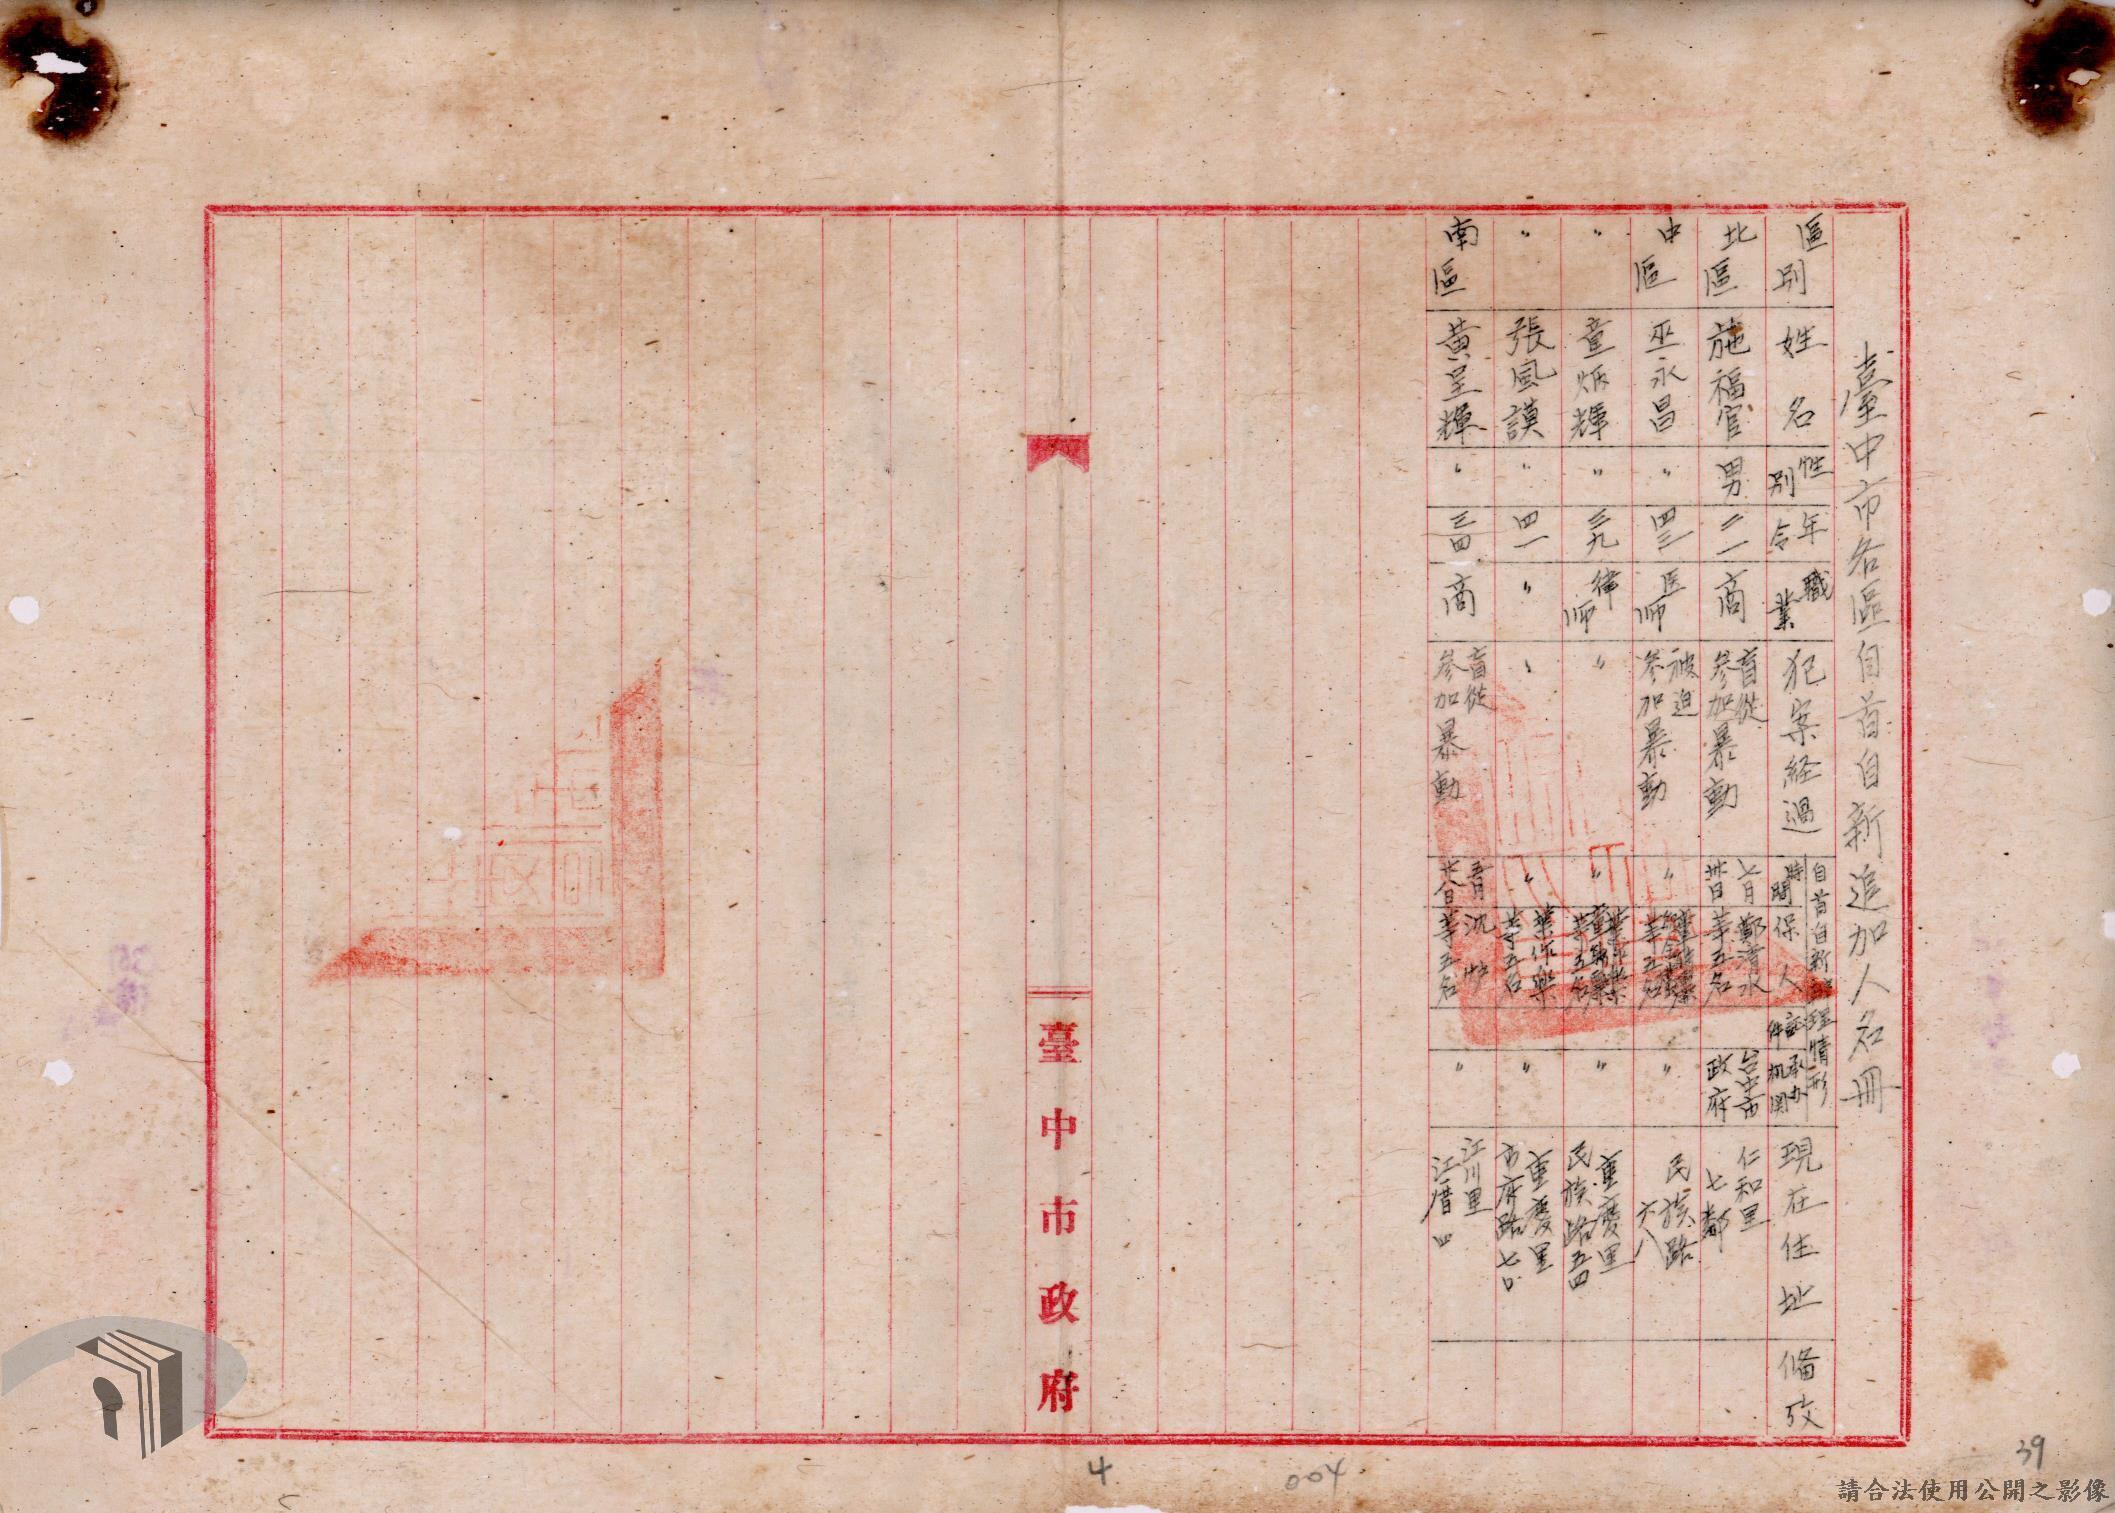 臺中市各區自首自新追加人名冊
區別 姓名 性別 年令 職業 犯案経過 自首自新 理情形 時間 保人 証件 承办机関 現在住址 備攷
北區 施福官 男 二一 商 盲從参加暴動 七月卅日 鄭清水等五名 台中市政府 仁和里七鄰
中區 巫永昌 〃 四三 医師 被迫参加暴動 〃 等五名 〃 民族路六八
〃 童炳輝 〃 三九 律師 〃 〃 等五名 〃 重慶里民族路五四
〃 張風謨 〃 四一 〃 〃 〃 葉作樂等五名 〃 重慶里市府路七〇
南區 黃呈輝 〃 三四 商 盲從参加暴動 五月廿八日 沈 等五名 〃 江川里江厝四
臺中市政府
4
004
39
請合法使用公開之影像